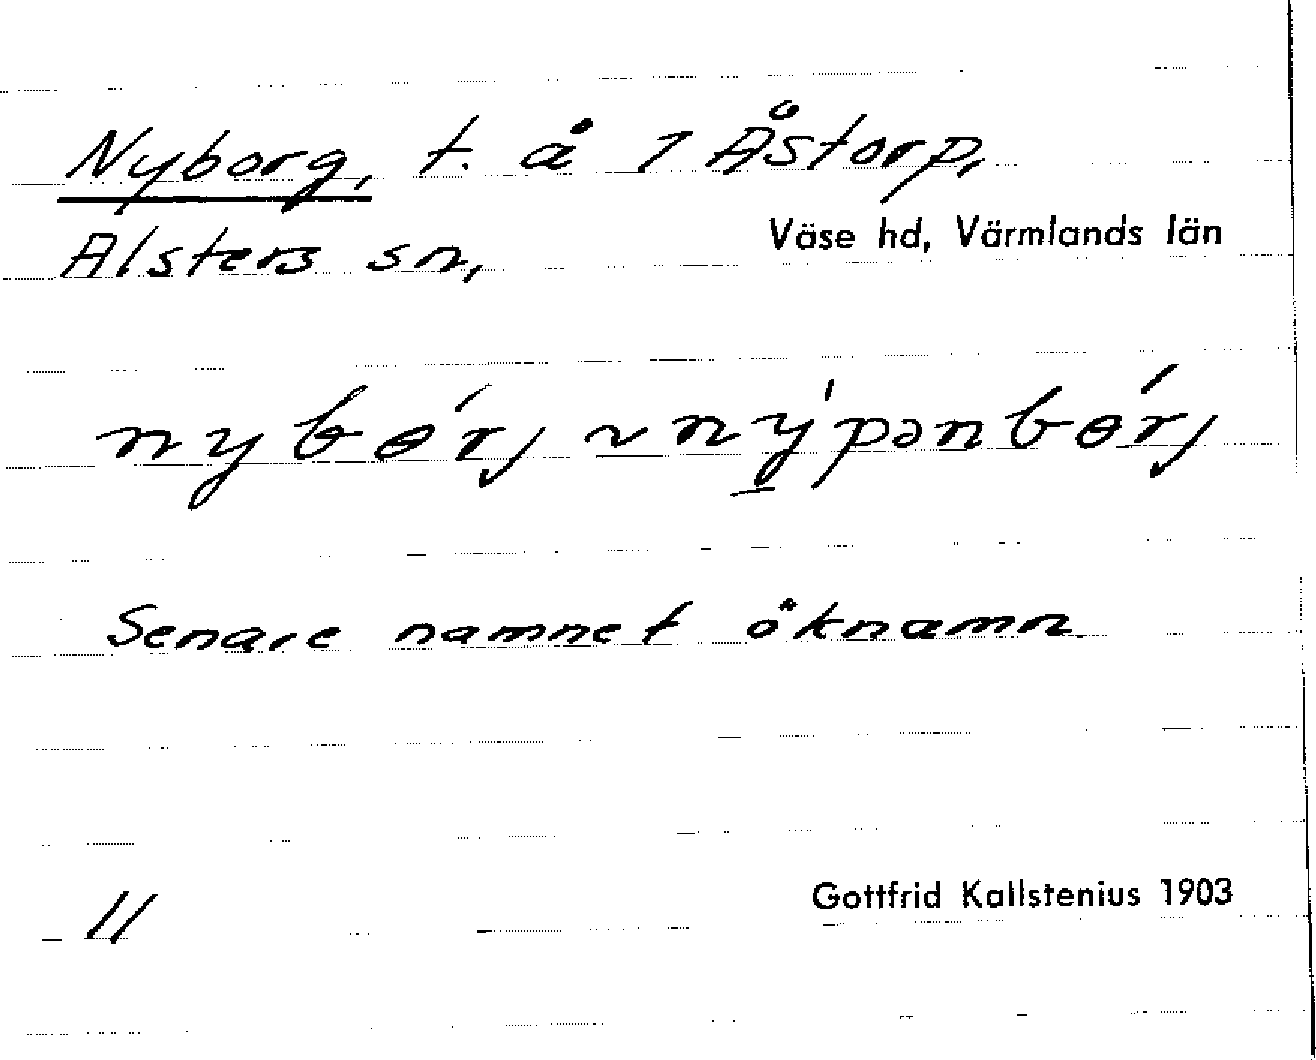 Nyborg, t. å 1 Åstorp,
Alsters sn, Väse hd, Värmlands län
nybɵ́rj ~ nýpənbɵ́rj
Senare namnet öknamn
Gottfrid Kallstenius 1903
11